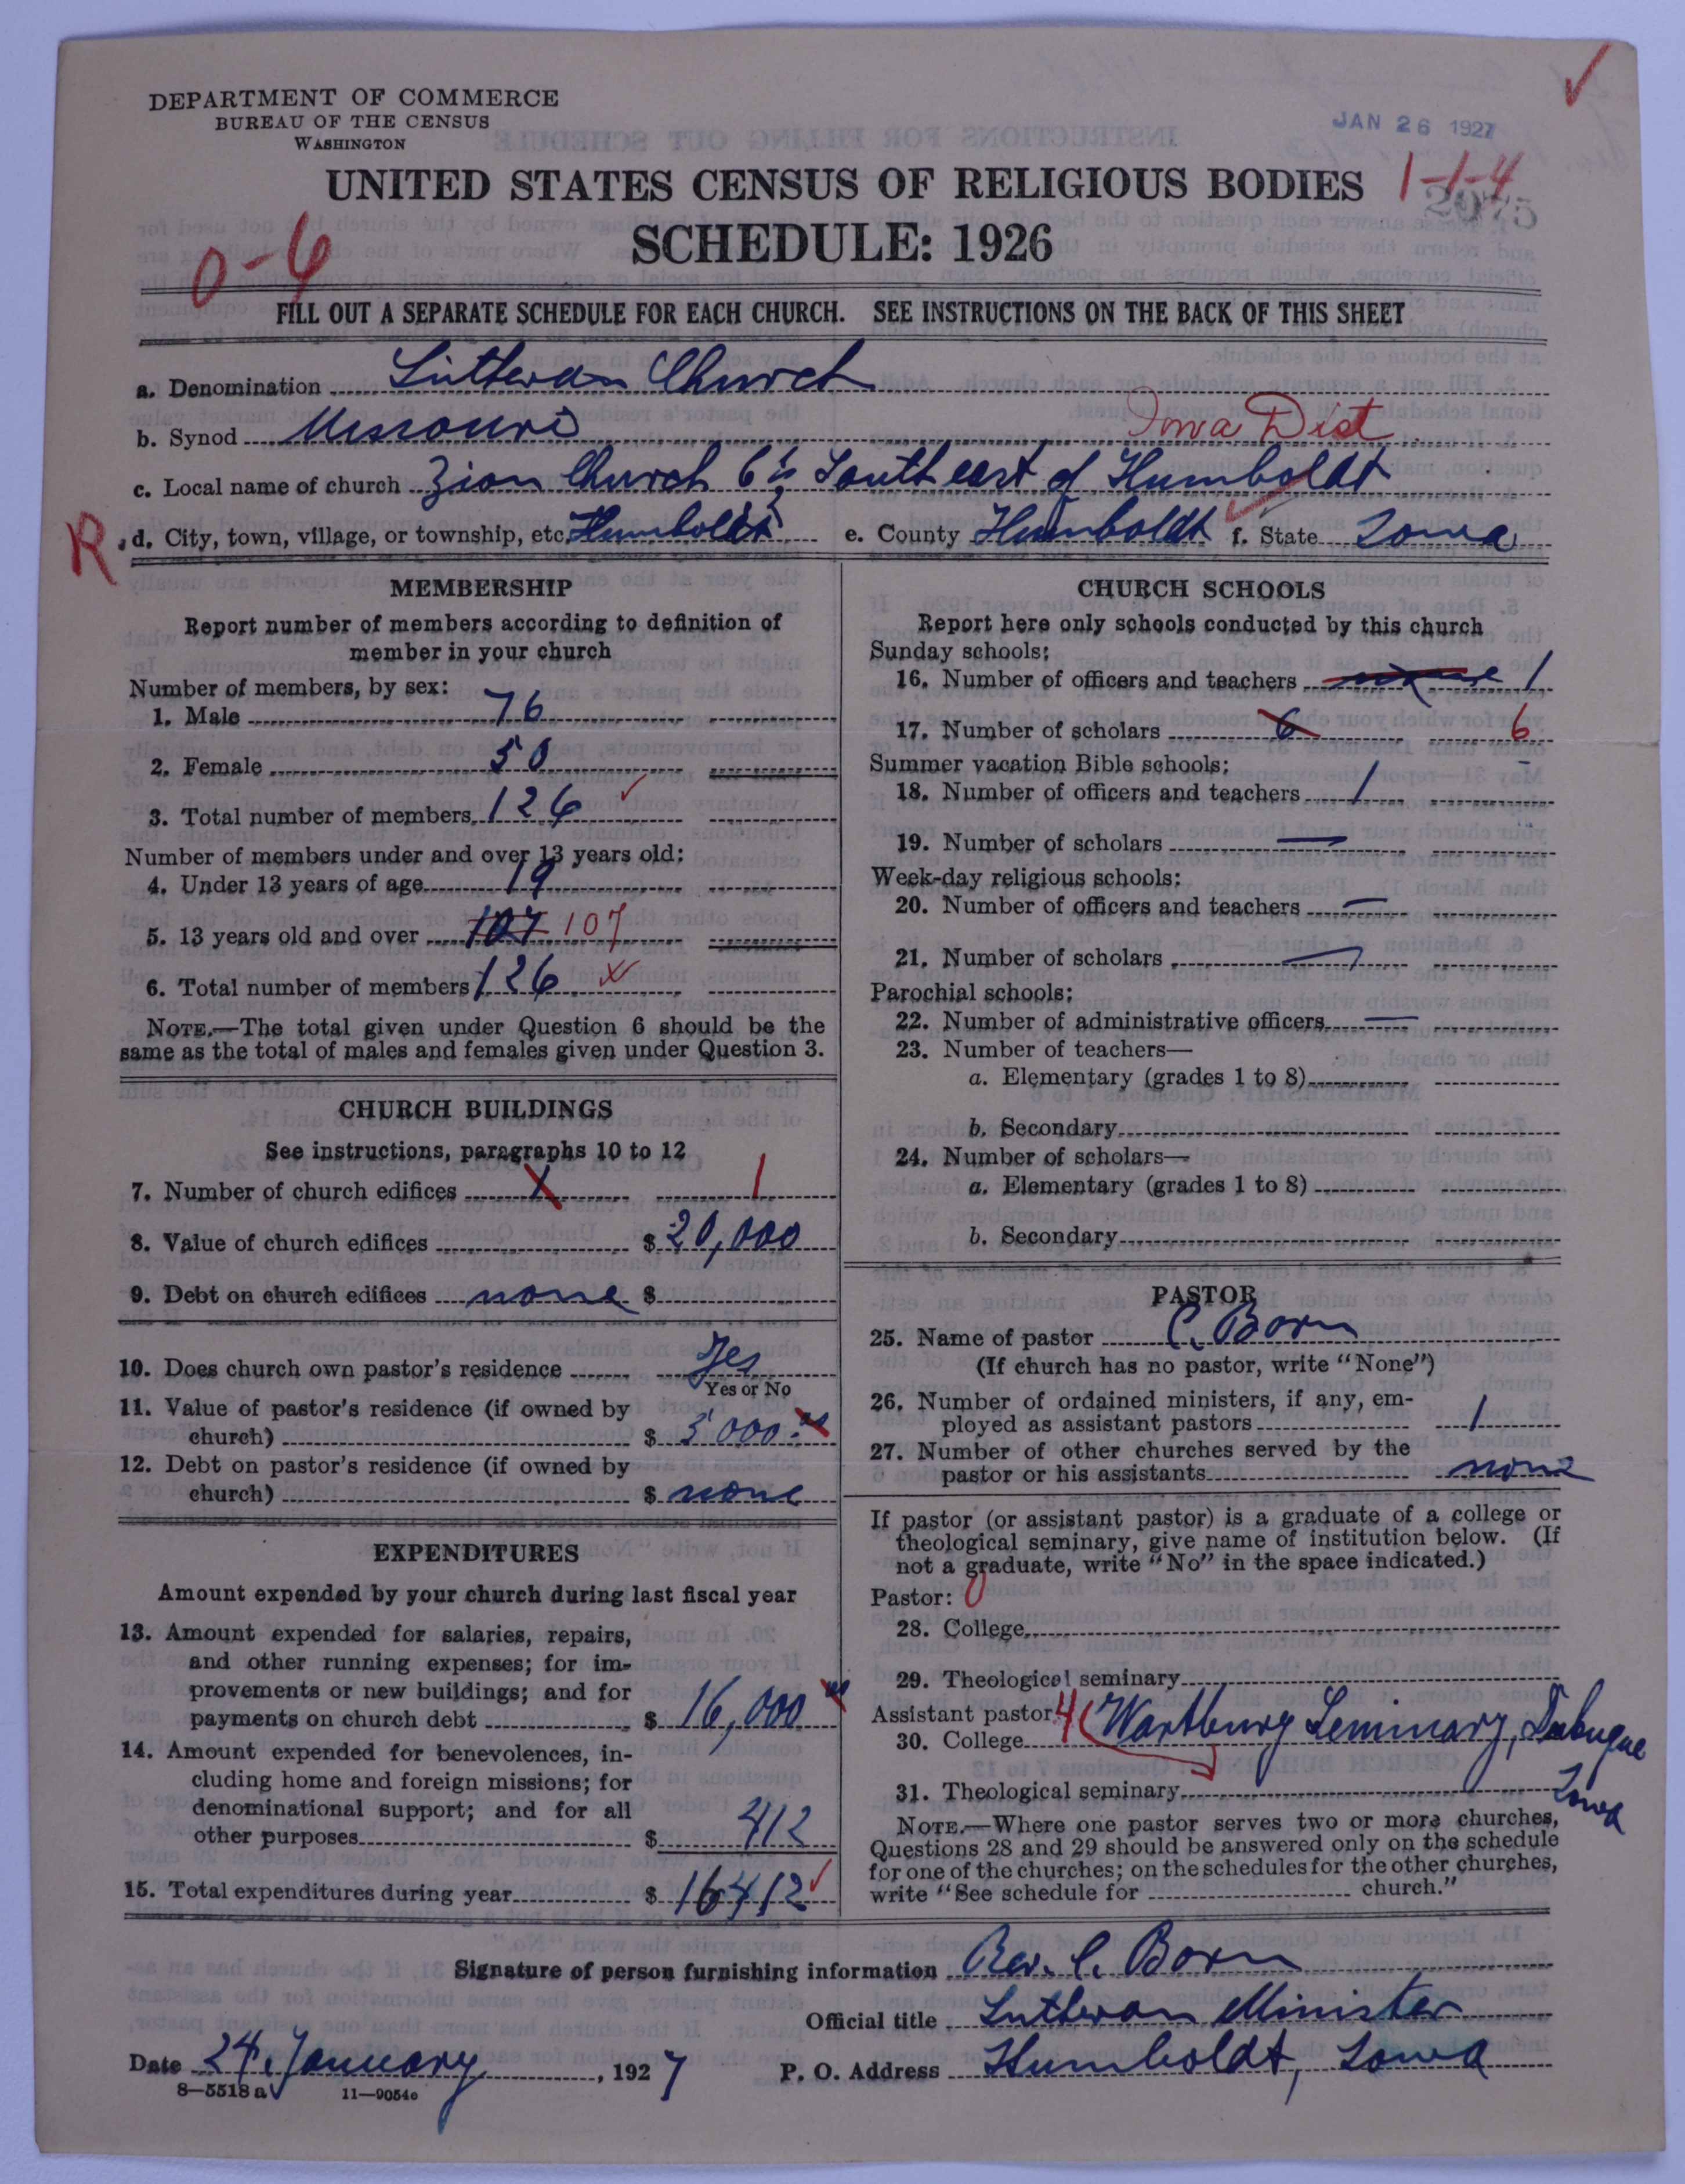 DEPARTMENT OF COMMERCE
BUREAU OF THE CENSUS
WASHINGTON
JAN 26 1927
UNITED STATES CENSUS OF RELIGIOUS BODIES 1-1-4
2075
0-6 SCHEDULE: 1926
FILL OUT A SEPARATE SCHEDULE FOR EACH CHURCH. SEE INSTRUCTIONS ON THE BACK OF THIS SHEET
a. Denomination Lutheran Church
b. Synod Missouri Iowa Dist.
c. Local name of church Zion Church 6 Southeast of Humboldt
R d. City, town, village, or township, etc. Humboldt e. County Humboldt f. State Iowa
MEMBERSHIP
Report number of members according to definition of
member in your church
Number of members, by sex:
1. Male 76
2. Female 50
3. Total number of members 126
Number of members under and over 13 years old:
4. Under 13 years of age 19
5. 13 years old and over 107 107
6. Total number of members 126
NOTE.—The total given under Question 6 should be the
same as the total of males and females given under Question 3.
CHURCH BUILDINGS
See instructions, paragraphs 10 to 12
7. Number of church edifices 1 1
8. Value of church edifices $ 20,000
9. Debt on church edifices none $
10. Does church own pastor's residence Yes
Yes or No
11. Value of pastor's residence (if owned by
church) $ 5000.00
12. Debt on pastor's residence (if owned by
church) $ none
EXPENDITURES
Amount expended by your church during last fiscal year
13. Amount expended for salaries, repairs,
and other running expenses; for im-
provements or new buildings; and for
payments on church debt $ 16,000 00
14. Amount expended for benevolences, in-
cluding home and foreign missions; for
denominational support; and for all
other purposes $ 412
15. Total expenditures during year $ 16412
CHURCH SCHOOLS
Report here only schools conducted by this church
Sunday schools:
16. Number of officers and teachers 1
17. Number of scholars 6 6
Summer vacation Bible schools:
18. Number of officers and teachers 1
19. Number of scholars —
Week-day religious schools:
20. Number of officers and teachers —
21. Number of scholars —
Parochial schools:
22. Number of administrative officers —
23. Number of teachers—
a. Elementary (grades 1 to 8)
b. Secondary
24. Number of scholars—
a. Elementary (grades 1 to 8)
b. Secondary
PASTOR
25. Name of pastor C. Born
(If church has no pastor, write "None")
26. Number of ordained ministers, if any, em-
ployed as assistant pastors 1
27. Number of other churches served by the
pastor or his assistants none
If pastor (or assistant pastor) is a graduate of a college or
theological seminary, give name of institution below. (If
not a graduate, write "No" in the space indicated.)
Pastor: 0
28. College
29. Theological seminary
Assistant pastor 4
30. College Wartburg Seminary, Dubuque
Iowa
31. Theological seminary
NOTE.—Where one pastor serves two or more churches,
Questions 28 and 29 should be answered only on the schedule
for one of the churches; on the schedules for the other churches,
write "See schedule for church."
Signature of person furnishing information Rev. C. Born
Official title Lutheran Minister
Date 24. January, 1927 P. O. Address Humboldt, Iowa
8—5518 a 11—9054c